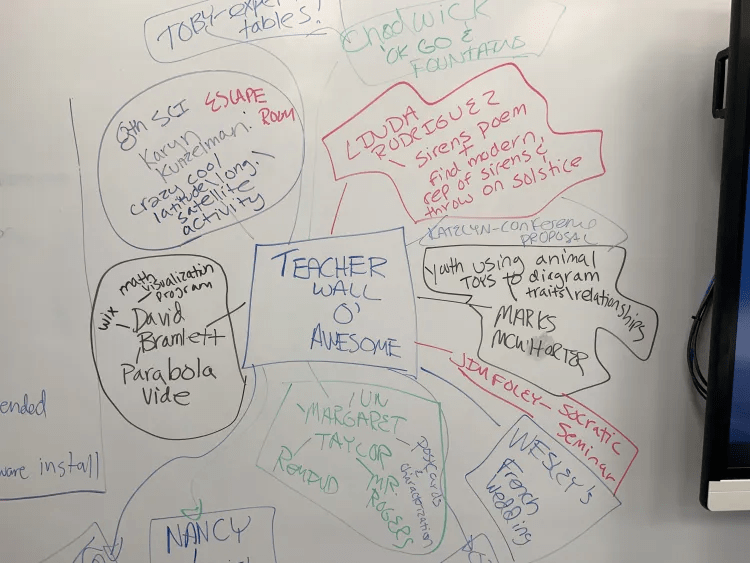 TOBY-exper
tables!
Chadwick
"OK GO &
FOUNTAINS
8th SCI ESCAPE
ROOM
Karyn
Kunzelman:
crazy cool
latitude/long.
satellite
activity
LINDA
RODRIGUEZ
Sirens poem
+
find modern
rep of sirens &
throw on solstice
KATELYN-conference
PROPOSAL
TEACHER
WALL
O'
AWESOME
Youth using animal
TOYS to diagram
traits/relationships
MARKS
MCWHORTER
math
visualization
program
wix
David
Bramlett
Parabola
Vide
JIM FOLEY- Socratic
Seminar
UN
MARGARET
TAYLOR
MR.
ROGERS
postcards
&
characterization
WESLEY'S
French
Wedding
ended
ware install
NANCY